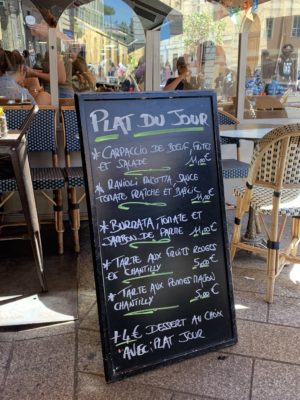 PLAT DU JOUR
* CARPACCIO DE BOEUF, FRITES
ET SALADE
* RAVIOLI RICOTTA, SAUCE
TOMATE FRAÎCHE ET BASILIC
* BURRATA, TOMATE ET
JAMBON DE PARME
* TARTE AUX FRUITS ROUGES
ET CHANTILLY 5,00€
* TARTE AUX POMMES MAISON
CHANTILLY 5,00€
+4€ DESSERT AU CHOIX
AVEC PLAT JOUR